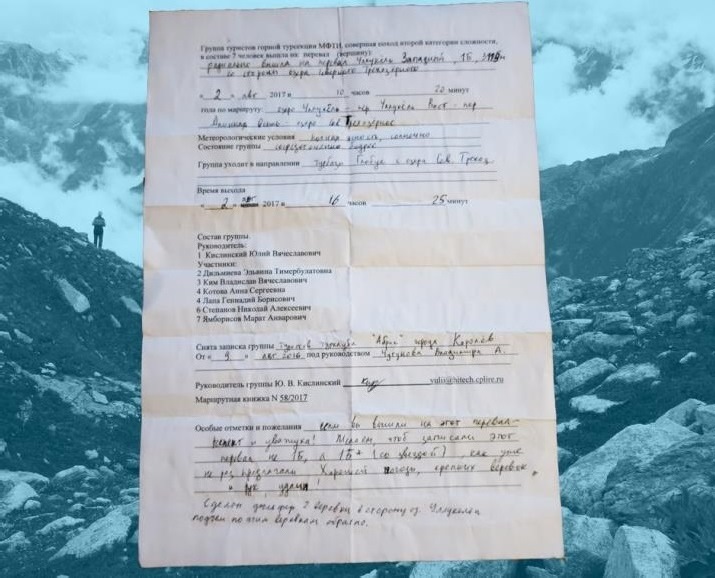 Группа туристов горной турсекции МФТИ, совершая поход второй категории сложности,
в составе 7 человек вышла на перевал (вершину):
радиально вышла на перевал Чкукель Западный, 1Б,
со стороны озера Северного Трехозерного
« 2 » авг 2017 в 10 часов 20 минут
года по маршруту: озеро - пер. Вост - пер
- озеро Сев. Трехозерное
Метеорологические условия ясность, солнечно
Состояние группы бодрое
Группа уходит в направлении Глобус к озера Сев. Трехоз
Время выхода
« 2 » авг 2017 в 16 часов 25 минут
Состав группы.
Руководитель:
1 Кислинский Юлий Вячеславович
Участники:
2 Дильмиева Эльвина Тимербулатовна
3 Ким Владислав Вячеславович
4 Котова Анна Сергеевна
4 Лапа Геннадий Борисович
6 Степанов Николай Алексеевич
7 Ямборисов Марат Анварович
Снята записка группы туристов турклуба "Абрис" города Королёв
От « 9 » авг 2016 под руководством Владимира А.
Руководитель группы Ю. В. Кислинский yulii@hitech.cplire.ru
Маршрутная книжка N 58/2017
Особые отметки и пожелания если вы вышли на этот перевал-
и уважуха! чтоб записали этот
перевал не 1Б, а 1Б* (со звездой), как уже
не раз предлагали. Хорошей погоды, крепких верёвок,
и удачи!
Сделан 2 верёвки в сторону
подъем по этим веревкам обратно.